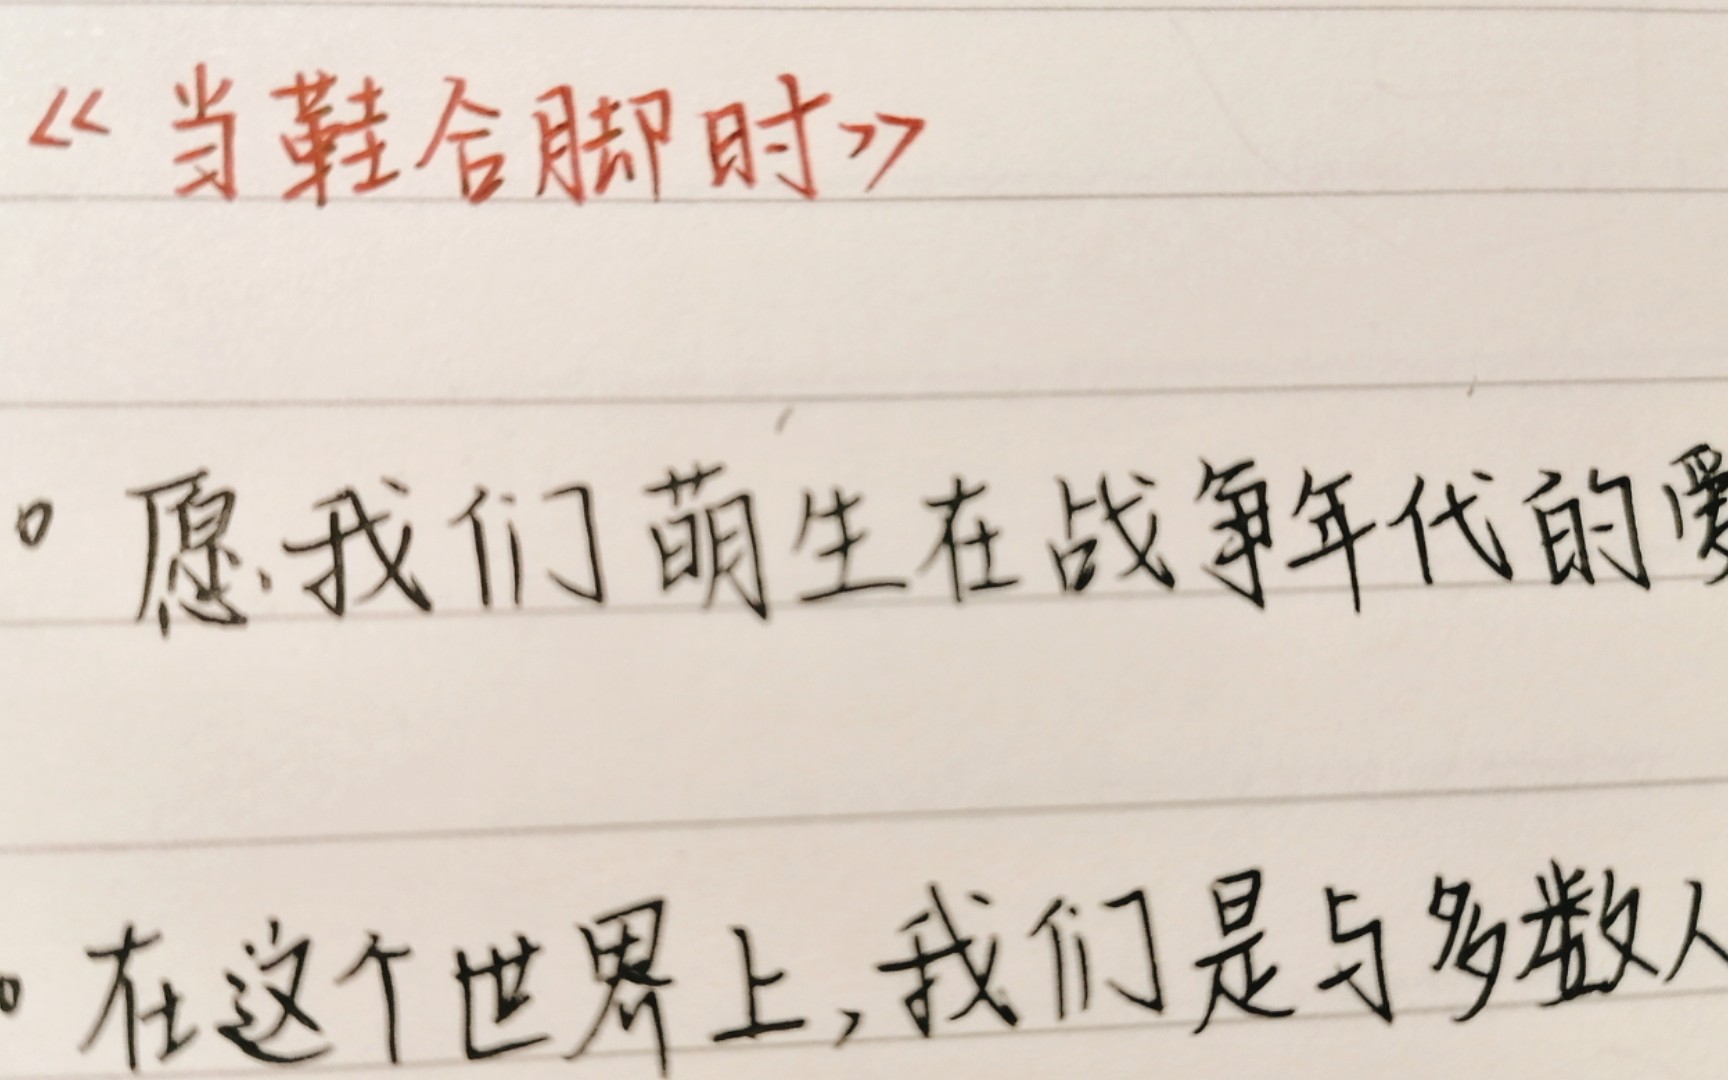 《当鞋合脚时》
。愿我们萌生在战争年代的爱
。在这个世界上,我们是与多数人